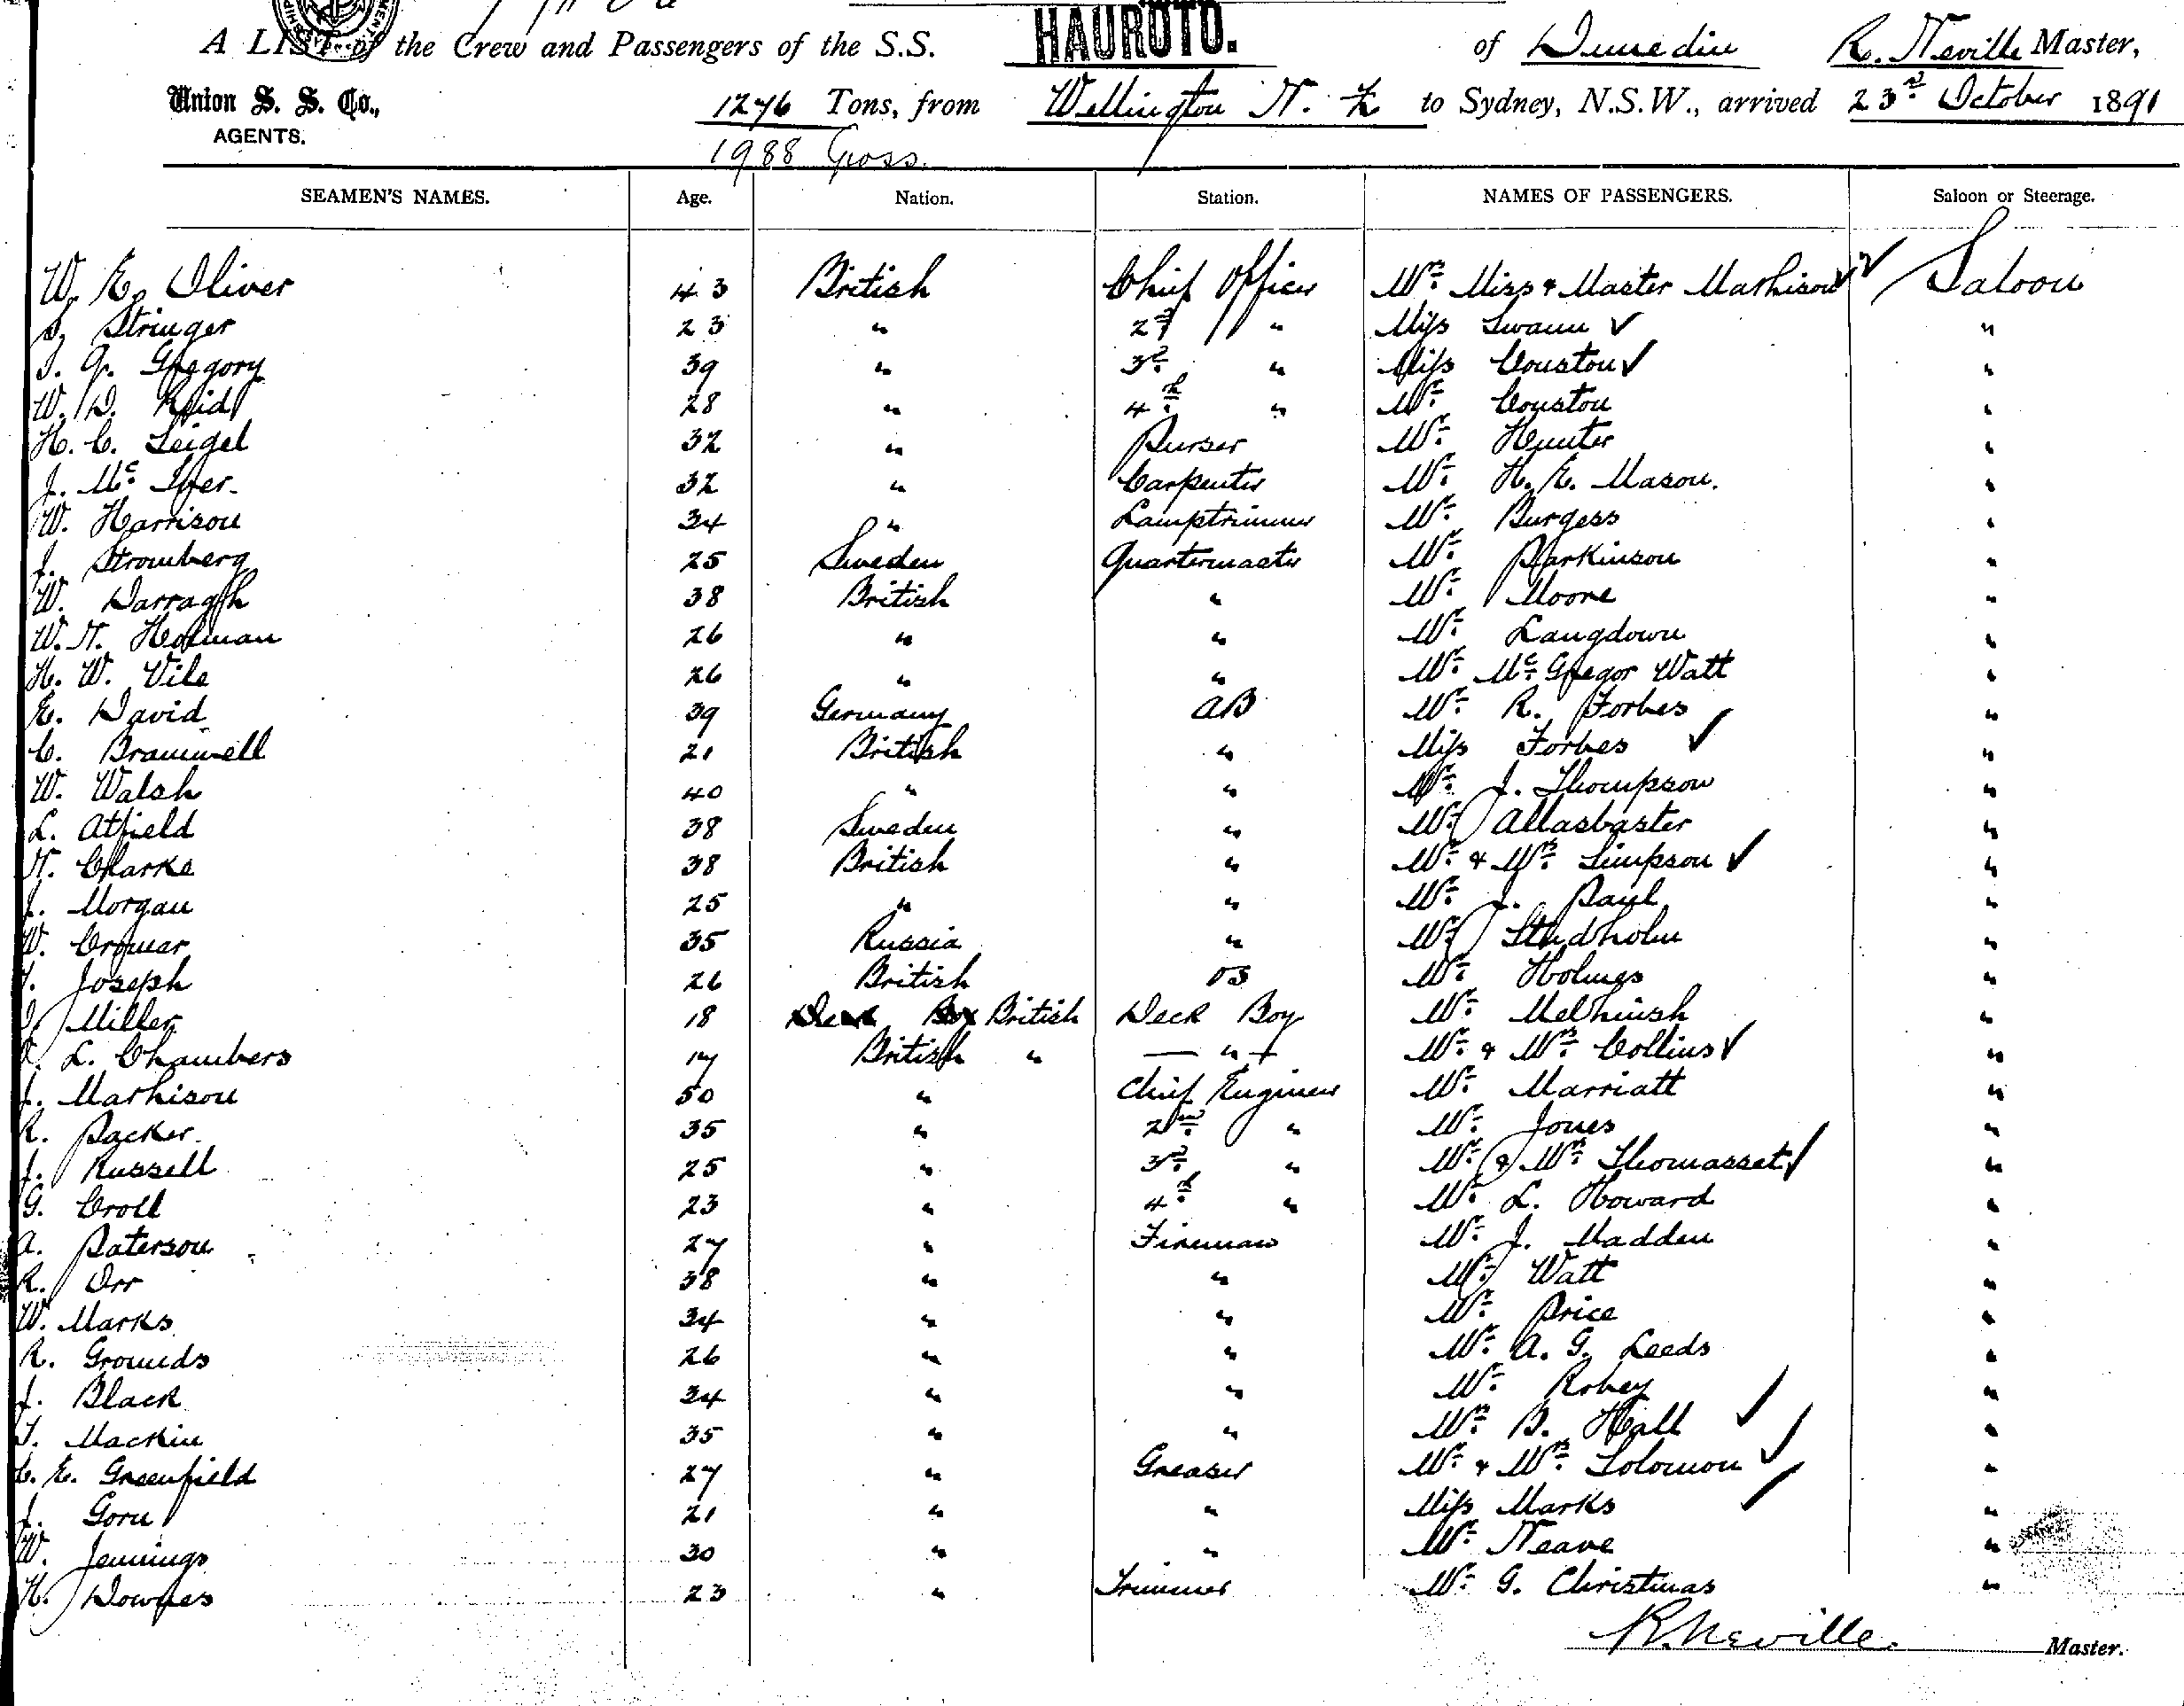 A LIST of the Crew and Passengers of the S.S. HAUROTO. of Dunedin R. Neville Master,
Union S. S. Co., 1276 Tons, from Wellington N. Z to Sydney, N.S.W., arrived 23rd October 1891
AGENTS. 1988 Gross.
SEAMEN'S NAMES. Age. Nation. Station. NAMES OF PASSENGERS. Saloon or Steerage.
W. E. Oliver 43 British Chief Officer Mrs Miss & Master Mathison Saloon
S. Stringer 23 " 2nd " Miss Swann "
Gregory 39 " 3rd " Miss Couston "
W. D. Reid 28 " 4th " Mr Couston "
H. C. Seigel 32 " Purser Mr Hunter "
J. Mc 32 " Carpenter Mr H. E. Mason. "
W. Harrison 34 " Lamptrimmer Mr Burgess "
J. Stromberg 25 Sweden Quartermaster Mr Parkinson "
W. Darragh 38 British " Mr Moore "
W. N. Holman 26 " " Mr Langdown "
H. W. Vile 26 " " Mr McGregor Watt "
E. David 39 Germany AB Mr R. Forbes "
C. Bramwell 21 British " Miss Forbes "
W. Walsh 40 " " Mr J. Thompson "
L. Atfield 38 Sweden " Mr Allasbaster "
N. Clarke 38 British " Mr & Mrs Simpson "
J. Morgan 25 " " Mr J. Paul "
W. Cromar 35 Russia " Mr Studholm "
Joseph 26 British OS Mr Holmes "
Miller 18 British Deck Boy Mr Melhuish "
L. Chambers 17 British " " Mr & Mrs Collins "
J. Mathison 50 " Chief Engineer Mr Marriatt "
R. Packer 35 " 2nd " Mr Jones "
J. Russell 25 " 3rd " Mr & Mrs Thomasset "
G. Croll 23 " 4th " Mr L. Howard "
A. Paterson 27 " Fireman Mr J. Madden "
R. Orr 38 " " Mr Watt "
W. Marks 34 " " Mr Price "
R. Grounds 26 " " Mr A. G. Leeds "
J. Black 34 " " Mr Robey "
T. Mackin 35 " " Mrs B. Hall "
C. E. Greenfield 27 " Greaser Mr & Mrs Solomon "
J. Gorn 21 " " Miss Marks "
W. Jennings 30 " " Mr Neave "
H. Downes 23 " Trimmer Mr G. Christmas "
R. Neville. Master.